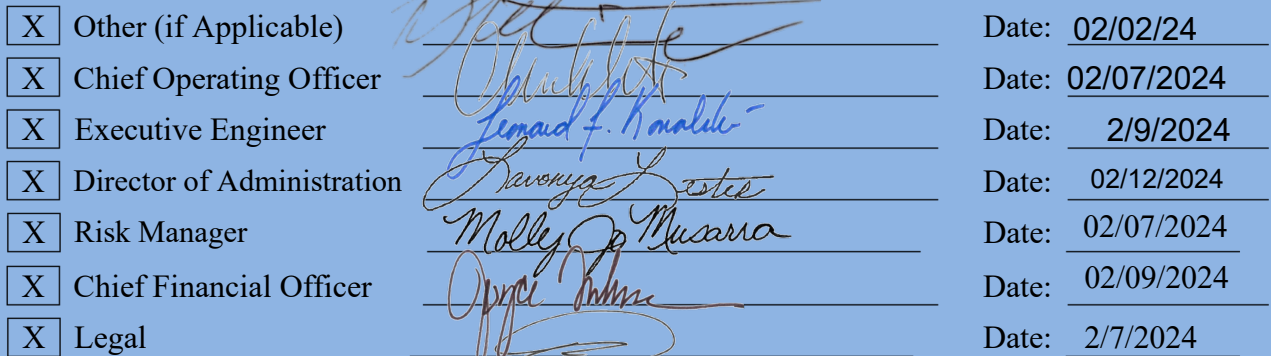 X Other (if Applicable) Date: 02/02/24
X Chief Operating Officer Date: 02/07/2024
X Executive Engineer Leonard F. Kowalski Date: 2/9/2024
X Director of Administration Lavonya Lester Date: 02/12/2024
X Risk Manager Molly Jo Musarra Date: 02/07/2024
X Chief Financial Officer Joyce Date: 02/09/2024
X Legal Date: 2/7/2024